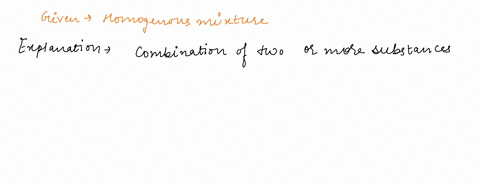 Given → Homogenous mixture
Explanation → Combination of two or more substances